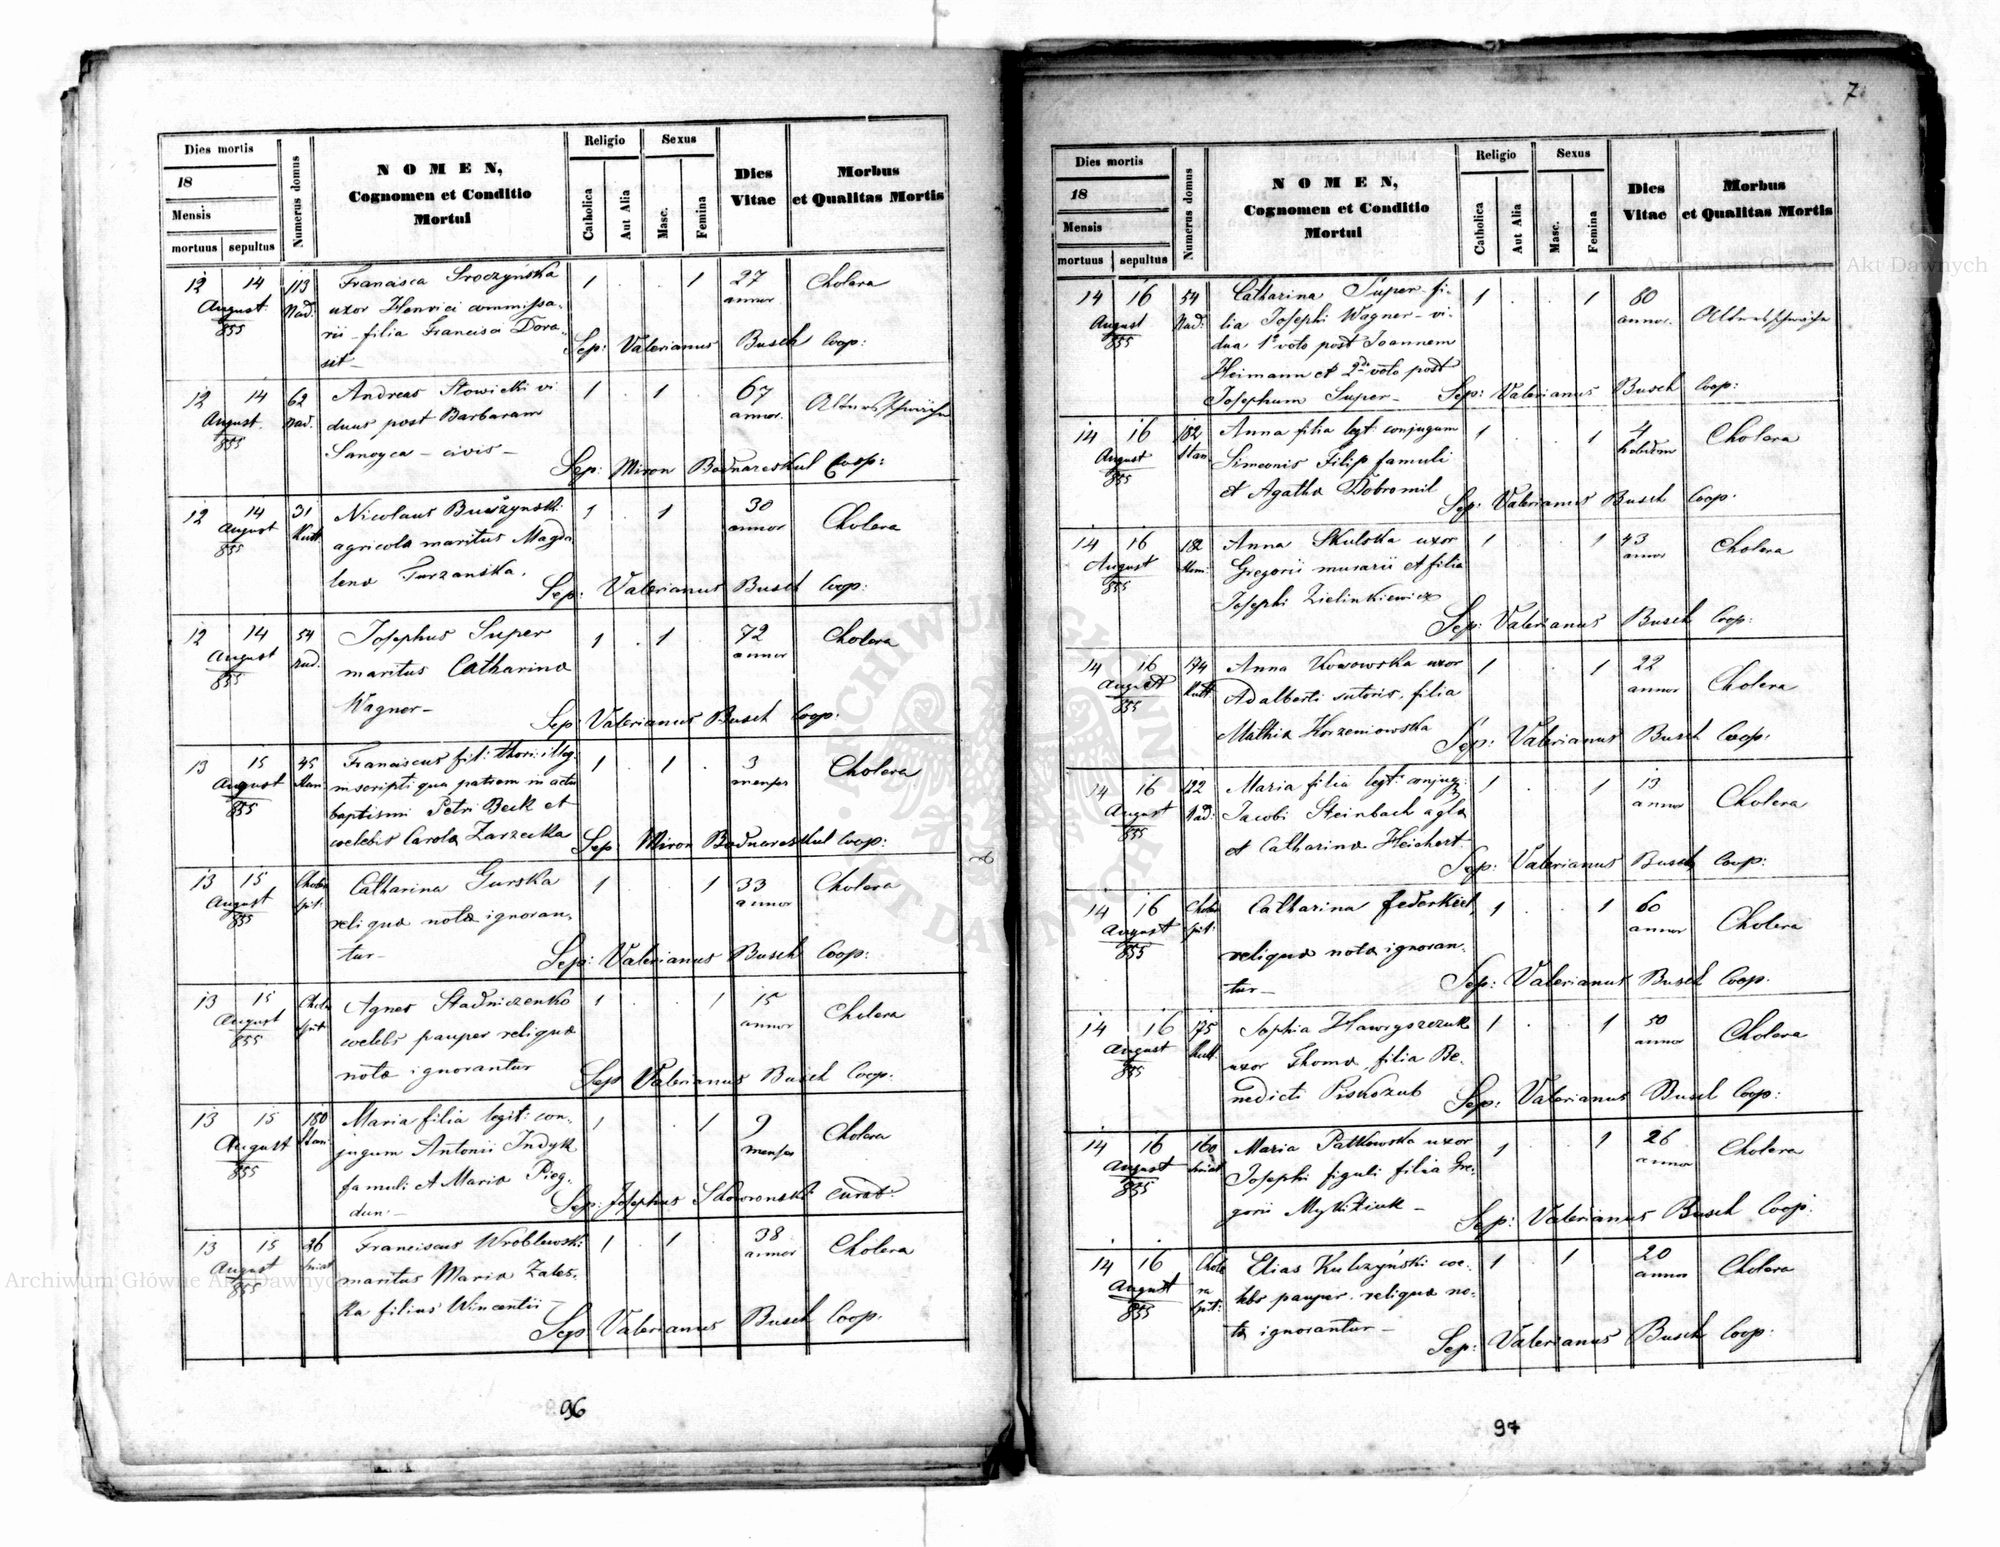 Dies mortis
18
Mensis
mortuus sepultus
Numerus domus
NOMEN,
Cognomen et Conditio
Mortui
Religio
Catholica
Aut Alia
Sexus
Masc.
Femina
Dies
Vitae
Morbus
et Qualitas Mortis
12 14 113 Francisca Sroczyńska 1 . . 1 27 Cholera
August Nad: uxor Henrici commissa- annor
855 rii - filia Francisci Dora-
sit - Sep: Valerianus Busch Coop:
12 14 62 Andreas Słowicki vi- 1 . 1 . 67 Altersschwäche
August Nad. duus post Barbaram annor.
855 Sanoyca - civis -
Sep: Miron Bodnareskul Coop:
12 14 31 Nicolaus 1 . 1 30 Cholera
August Kutt agricola maritus Magda annor
855 lena Turzanska. Sep: Valerianus Busch Coop:
12 14 54 Josephus Super 1 . 1 . 72 Cholera
August Nad. maritus Catharina annor
855 Wagner - Sep: Valerianus Busch Coop:
13 15 45 Franciscus fil: thori illeg: 1 . 1 . 3 Cholera
August Stani inscripti qua patrem in actu menses
855 baptismi Petri Beck et
coelebis Carola Zarzecka Sep: Miron Bodnareskul Coop:
13 15 Choler Catharina Gurska 1 . . 1 33 Cholera
August spit: reliqua nota ignoran- annor
855 tur - Sep: Valerianus Busch Coop:
13 15 Choler Agnes Stadniczenko 1 . . 1 15 Cholera
August spit: coelebs pauper reliqua annor
855 nota ignorantur Sep Valerianus Busch Coop:
13 15 180 Maria filia legit: con- 1 . . 1 9 Cholera
August Stan: jugum Antonii Indyk menses
855 famuli et Maria Pieg-
dun - Sep: Josephus curat:
13 15 26 Franciscus Wroblewski 1 . 1 . 38 Cholera
August maritus Maria Zales- annor
855 ka filius Wincentii -
Sep Valerianus Busch Coop.
96
7
Dies mortis
18
Mensis
mortuus sepultus
Numerus domus
NOMEN,
Cognomen et Conditio
Mortui
Religio
Catholica
Aut Alia
Sexus
Masc.
Femina
Dies
Vitae
Morbus
et Qualitas Mortis
14 16 54 Catharina Super - fi- 1 . . 1 80 Altersschwäche
August Nad: lia Josephi Wagner - vi- annor.
855 dua 1º voto post Joannem
Heimann et 2do voto post
Josephum Super - Sep: Valerianus Busch Coop:
14 16 182 Anna filia legt: conjugum 1 . . 1 4 Cholera
August Stan Simeonis Filip famuli hebdom
855 et Agatha Dobromil Sep: Valerianus Busch Coop:
14 16 182 Anna Skulska uxor 1 . . 1 43 Cholera
August Gregorii murarii et filia annor
855 Josephi Zielinkiewicz
Sep: Valerianus Busch Coop:
14 16 174 Anna uxor 1 . . 1 22 Cholera
August Kutt Adalberti sutoris, filia annor
855 Mathia Korzeniowska Sep: Valerianus Busch Coop:
14 16 122 Maria filia legt: conjug: 1 . . 1 13 Cholera
August Nad: Jacobi Steinbach agla annor
855 et Catharina Heichert - Sep: Valerianus Busch Coop:
14 16 Choler Catharina Federkiel, 1 . . 1 60 Cholera
August spit: reliqua nota ignoran- annor
855 tur - Sep: Valerianus Busch Coop.
14 16 175 Sophia Hawryszczuk 1 . . 1 50 Cholera
August Kutt. uxor Thoma, filia Be- annor
855 nedicti Piskozub Sep: Valerianus Busch Coop:
14 16 160 Maria Patkowska uxor 1 . . 1 26 Cholera
August Josephi figuli filia Gre- annor
855 gorii Mykitiuk - Sep: Valerianus Busch Coop:
14 16 Chole Elias Kulczyński coe- 1 . 1 . 20 Cholera
August ra lebs pauper. reliqua no- annor
855 spit: ta ignorantur - Sep: Valerianus Busch Coop:
97
Archiwum Główne Akt Dawnych
Archiwum Główne Akt Dawnych
ARCHIWUM GŁÓWNE AKT DAWNYCH